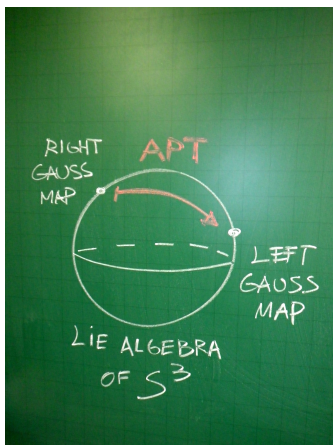 APT
RIGHT
GAUSS
MAP
LEFT
GAUSS
MAP
LIE ALGEBRA
OF S³